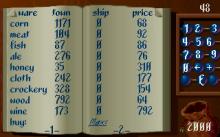 ware town ship price
corn 1171 0 68
meat 104 0 92
fish 87 0 86
ale 276 0 76
honey 35 0 310
cloth 242 0 177
crockery 328 0 154
wood 792 0 64
wine 173 0 792
buy:
-1- -2-
48
1 2 3
4 5 6
7 8 9
0
2000